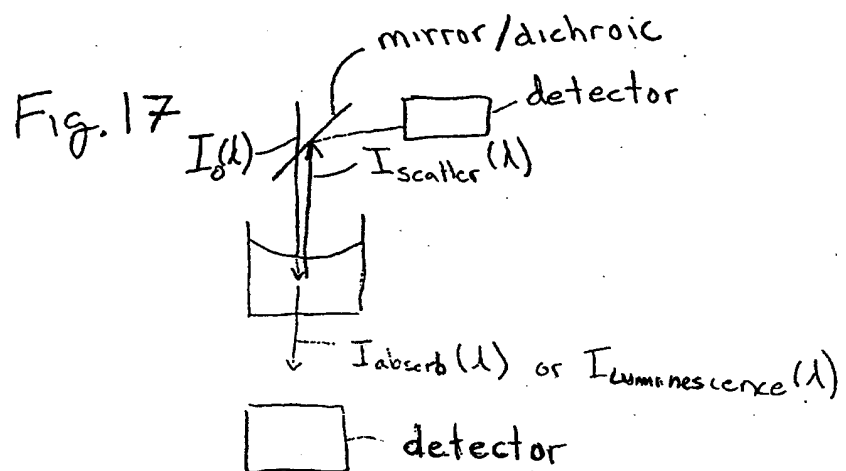 mirror/dichroic
detector
Fig. 17
I₀(λ)
Iscatter(λ)
Iabsorb(λ) or ILuminescence(λ)
detector